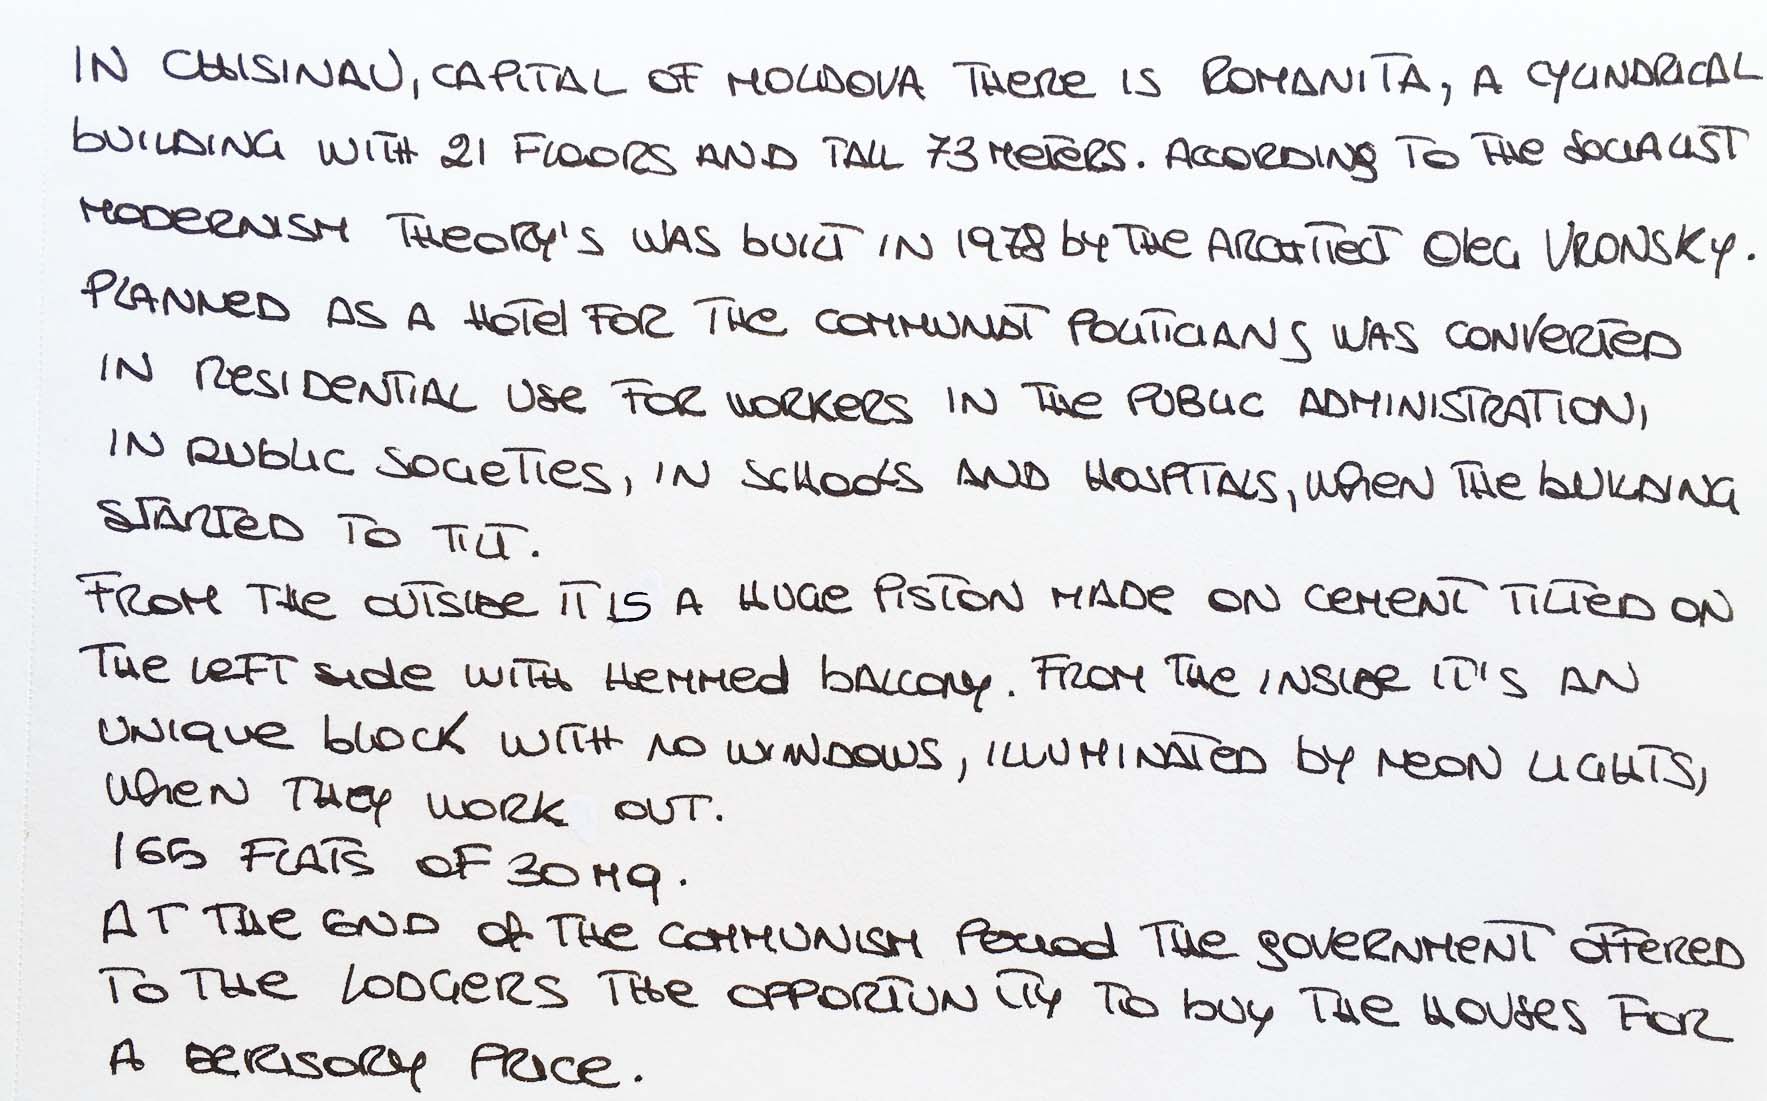 IN CHISINAU, CAPITAL OF MOLDOVA THERE IS ROMANITA, A CYLINDRICAL
BUILDING WITH 21 FLOORS AND TALL 73 METERS. ACCORDING TO THE SOCIALIST
MODERNISM THEORY'S WAS BUILT IN 1978 BY THE ARCHITECT OLEG VRONSKY.
PLANNED AS A HOTEL FOR THE COMMUNIST POLITICIANS WAS CONVERTED
IN RESIDENTIAL USE FOR WORKERS IN THE PUBLIC ADMINISTRATION,
IN PUBLIC SOCIETIES, IN SCHOOLS AND HOSPITALS, WHEN THE BUILDING
STARTED TO TILT.
FROM THE OUTSIDE IT IS A HUGE PISTON MADE ON CEMENT TILTED ON
THE LEFT SIDE WITH HEMMED BALCONY. FROM THE INSIDE IT'S AN
UNIQUE BLOCK WITH NO WINDOWS, ILLUMINATED BY NEON LIGHTS,
WHEN THEY WORK OUT.
165 FLATS OF 30 MQ.
AT THE END OF THE COMMUNISM PERIOD THE GOVERNMENT OFFERED
TO THE LODGERS THE OPPORTUNITY TO BUY THE HOUSES FOR
A DERISORY PRICE.